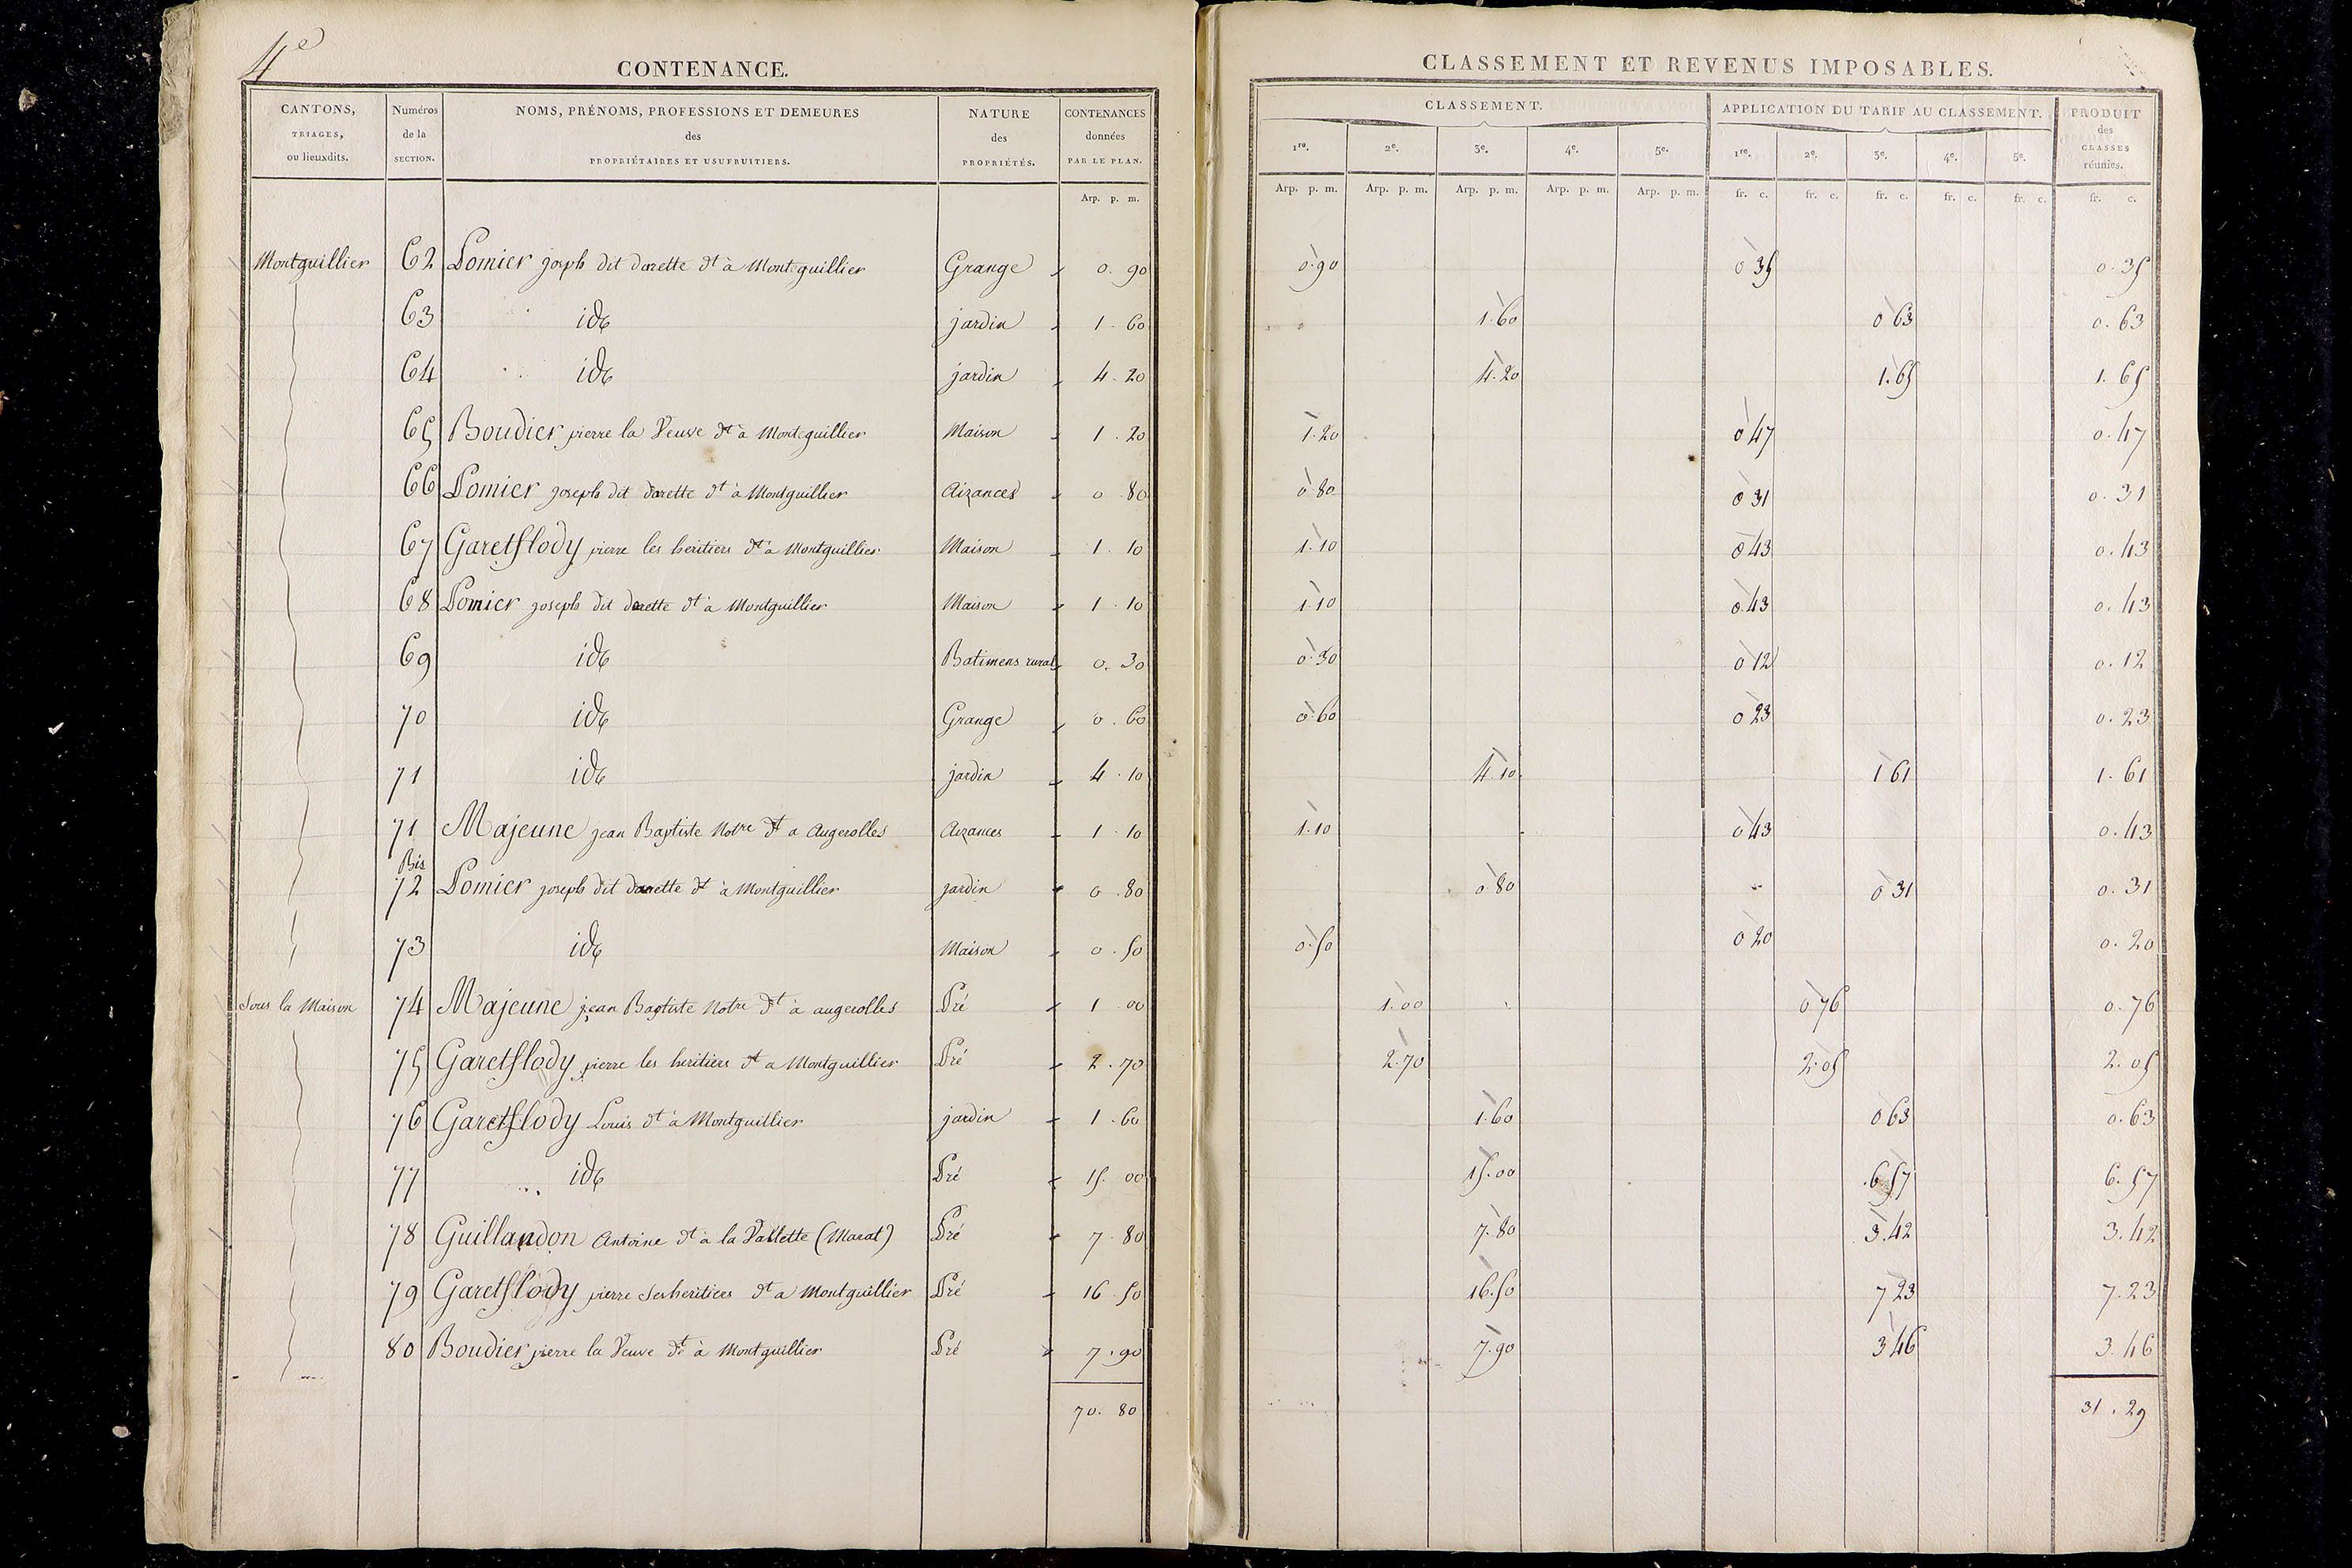 4e
CONTENANCE.
CANTONS, TRIAGES, ou lieuxdits. | Numéros de la SECTION. | NOMS, PRÉNOMS, PROFESSIONS ET DEMEURES des PROPRIÉTAIRES ET USUFRUITIERS. | NATURE des PROPRIÉTÉS. | CONTENANCES données PAR LE PLAN.
Arp. p. m.
Montguillier 62 Pomier joseph dit darette dt à Montguillier Grange 0. 90
63 ide jardin 1. 60
64 ide jardin 4. 20
65 Boudier pierre la Veuve dt à Montguillier Maison 1. 20
66 Pomier joseph dit darette dt à Montguillier Aizances 0. 80
67 Garetflody pierre les heritiers dt à Montguillier Maison 1. 10
68 Pomier joseph dit darette dt à Montguillier Maison 1. 10
69 ide Batimens rural 0. 30
70 ide Grange 0. 60
71 ide jardin 4. 10
71 Bis Majeune jean Baptiste Notre dt a Augerolles Aizances 1. 10
72 Pomier joseph dit darette dt à Montguillier jardin 0. 80
73 ide Maison 0. 50
Sous la Maison 74 Majeune jean Baptiste Notre dt à augerolles Pré 1 00
75 Garetflody pierre les heritiers dt a Montguillier Pré 2. 70
76 Garetflody Louis dt à Montguillier jardin 1. 60
77 ide Pré 15. 00
78 Guillandon Antoine dt à la Vallette (Marat) Pré 7. 80
79 Garetflody pierre ses heritiers dt a Montguillier Pré 16 50
80 Boudier pierre la Veuve dt à Montguillier Pré 7. 90
70. 80
CLASSEMENT ET REVENUS IMPOSABLES.
CLASSEMENT. | APPLICATION DU TARIF AU CLASSEMENT. | PRODUIT des CLASSES réunies.
1re. 2e. 3e. 4e. 5e. 1re. 2e. 3e. 4e. 5e.
Arp. p. m. Arp. p. m. Arp. p. m. Arp. p. m. Arp. p. m. fr. c. fr. c. fr. c. fr. c. fr. c. fr. c.
0.90 0 35 0.35
1.60 0 63 0.63
4.20 1.65 1.65
1.20 0 47 0.47
0 80 0 31 0.31
1.10 0 43 0.43
1.10 0.43 0.43
0.30 0 12 0.12
0.60 0 23 0.23
4.10 1 61 1.61
1.10 0 43 0.43
0.80 0 31 0.31
0.50 0 20 0.20
1.00 0 76 0.76
2.70 2.05 2.05
1.60 0 63 0.63
15.00 6 57 6.57
7.80 3.42 3.42
16.50 7 23 7.23
7.90 3 46 3.46
31.29